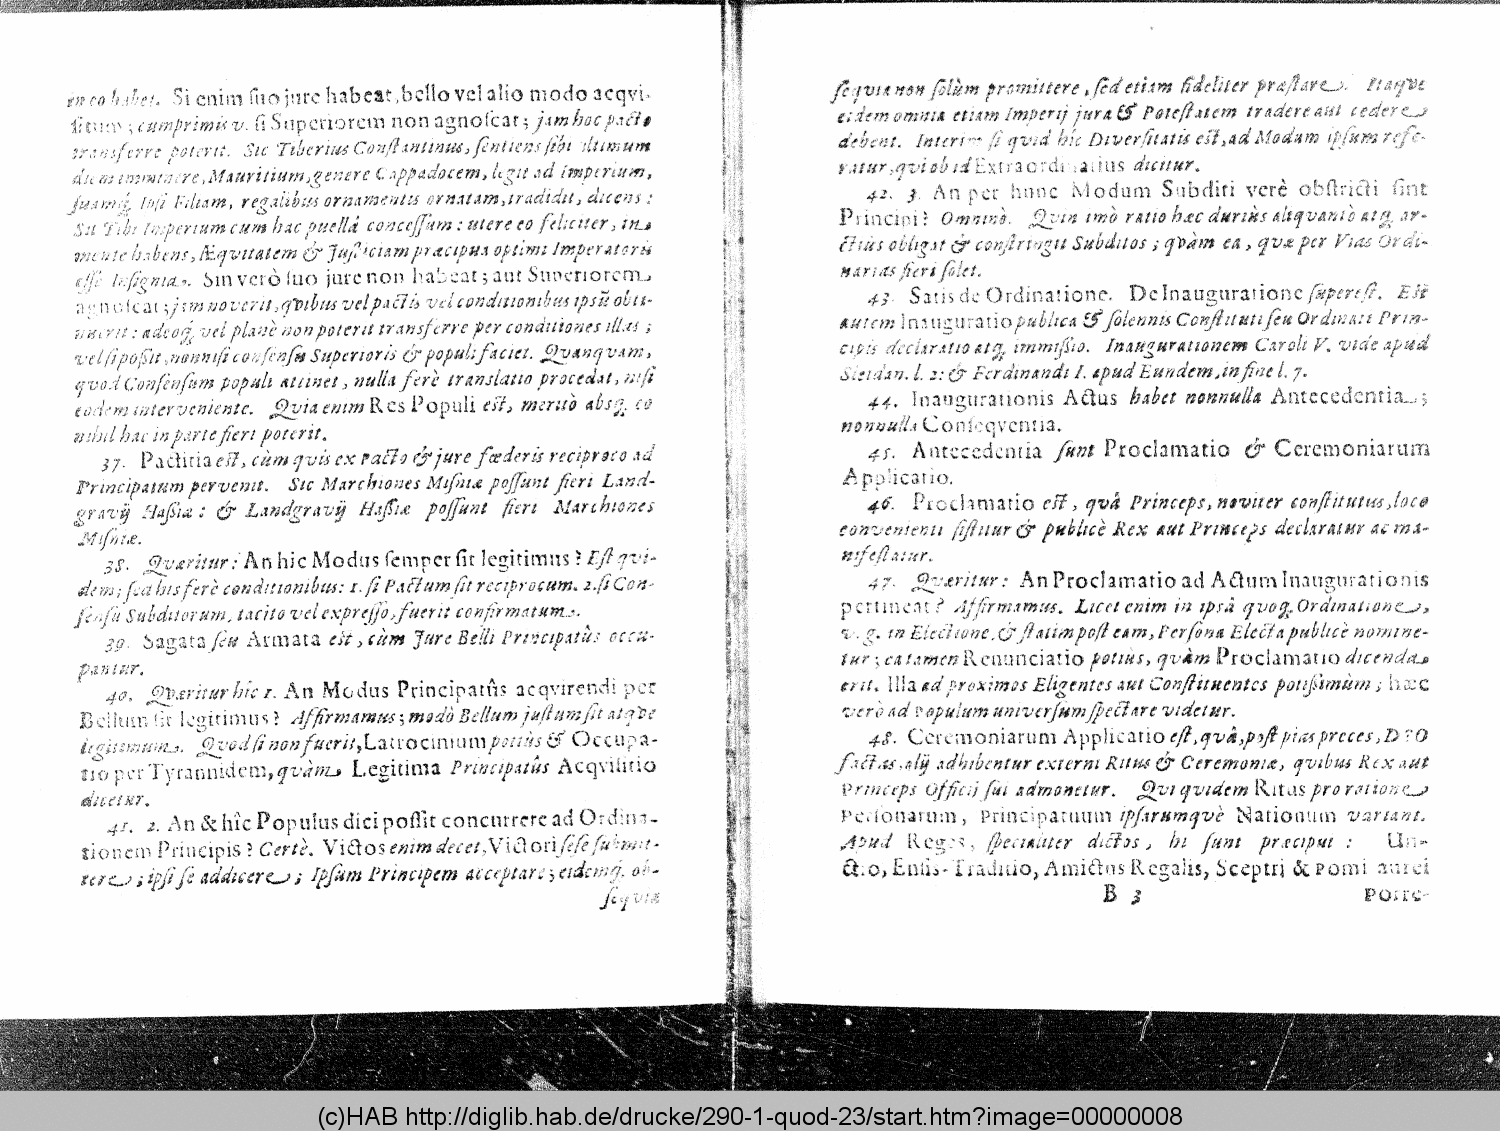 en eo habet. Si enim ſuo jure habeat, bello vel alio modo acqvi-
ſitum; cumprimis v. ſi Superiorem non agnoſcat; jam hoc pacto
transferre poterit. Sic Tiberius Conſtantinus, ſentiens ſibi ultimum
diem imminere, Mauritium, genere Cappadocem, legit ad imperium,
ſuamq́; Ipſi Filiam, regalibus ornamentis ornatam, tradidit, dicens:
Sit Tibi Imperium cum hac puellâ conceſſum: utere eo feliciter, in
mente habens, Æqvitatem & Juſticiam præcipua optimi Imperatoris
eſſe Inſignia. Sin verò ſuo jure non habeat; aut Superiorem
agnoſcat; jam noverit, qvibus vel pactis vel conditionibus ipsũ obti-
nuerit: adeoq́; vel planè non poterit transferre per conditiones illas;
vel ſi poßit, nonniſi conſenſu Superioris & populi faciet. Qvanqvam,
quod Conſenſum populi attinet, nulla ferè translatio procedat, niſi
eodem interveniente. Qvia enim Res Populi eſt, meritò absq́; eo
nihil hac in parte fieri poterit.
37. Pactitia eſt, cùm quis ex Pacto & jure fœderis reciproco ad
Principatum pervenit. Sic Marchiones Miſniæ poſſunt fieri Land-
gravij Haßiæ: & Landgravij Haßiæ poſſunt fieri Marchiones
Miſniæ.
38. Qværitur: An hic Modus ſemper ſit legitimus? Eſt qvi-
dem; ſed his ferè conditionibus: 1. ſi Pactum ſit reciprocum. 2. ſi Con-
ſenſu Subditorum, tacito vel expreſſo, fuerit confirmatum.
39. Sagata ſeu Armata eſt, cùm Jure Belli Principatûs occu-
pantur.
40. Qværitur hîc 1. An Modus Principatûs acqvirendi per
Bellum ſit legitimus? Affirmamus; modò Bellum juſtum ſit atqve
legitimum. Qvod ſi non fuerit, Latrocinium potiùs & Occupa-
tio per Tyrannidem, quàm Legitima Principatûs Acqviſitio
dicetur.
41. 2. An & hîc Populus dici poſſit concurrere ad Ordina-
tionem Principis? Certè. Victos enim decet, Victori ſeſe ſubmit-
tere; ipſi ſe addicere; Ipſum Principem acceptare; eidemq́; ob-
ſequia
ſequia non ſolùm promittere, ſed etiam fideliter præſtare. Itaqve
eidem omnia etiam Imperij jura & Poteſtatem tradere aut cedere
debent. Interim ſi quid hîc Diverſitatis eſt, ad Modum ipſum refe-
ratur, qui ob id Extraordinarius dicitur.
42. 3. An per hunc Modum Subditi verè obſtricti ſint
Principi? Omninò. Qvin imò ratio hæc duriùs aliqvantò atq́; ar-
ctiùs obligat & conſtringit Subditos; qvàm ea, quæ per Vias Ordi-
narias fieri ſolet.
43. Satis de Ordinatione. De Inauguratione ſupereſt. Eſt
autem Inauguratio publica & ſolennis Conſtituti ſeu Ordinati Prin-
cipis declaratio atq́; immiſſio. Inaugurationem Caroli V. vide apud
Sleidan. l. 2: & Ferdinandi I. apud Eundem, in fine l. 7.
44. Inaugurationis Actus habet nonnulla Antecedentia;
nonnulla Conſeqventia.
45. Antecedentia ſunt Proclamatio & Ceremoniarum
Applicatio.
46. Proclamatio eſt, quâ Princeps, noviter conſtitutus, loco
convenienti ſiſtitur & publicè Rex aut Princeps declaratur ac ma-
nifeſtatur.
47. Qværitur: An Proclamatio ad Actum Inaugurationis
pertineat? Affirmamus. Licet enim in ipsâ quoq́; Ordinatione,
v. g. in Electione, & ſtatim poſt eam, Perſona Electa publicè nomine-
tur; ea tamen Renunciatio potius, quàm Proclamatio dicenda
erit. Illa ad proximos Eligentes aut Conſtituentes potißimùm; hæc
verò ad Populum univerſum ſpectare videtur.
48. Ceremoniarum Applicatio eſt, quâ, poſt pias preces, DEO
factas, alij adhibentur externi Ritus & Ceremoniæ, quibus Rex aut
Princeps Officij ſui admonetur. Qvi quidem Ritus pro ratione
Perſonarum, Principatuum ipſarumquè Nationum variant.
Apud Reges, ſpecialiter dictos, hi ſunt præcipui: Un-
ctio, Enſis-Traditio, Amictus Regalis, Sceptri & Pomi aurei
B 3 Porre-
(c)HAB http://diglib.hab.de/drucke/290-1-quod-23/start.htm?image=00000008